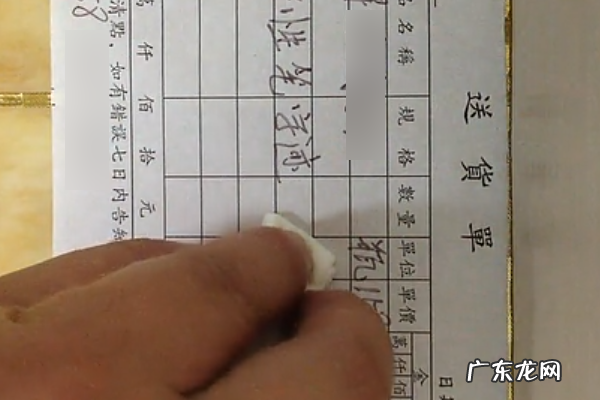 送貨單
日
品名稱 規格 數量 單位 單價 金
萬仟佰
性笔字迹
萬仟佰拾元
清點,如有錯誤七日內告知
8
广东龙网